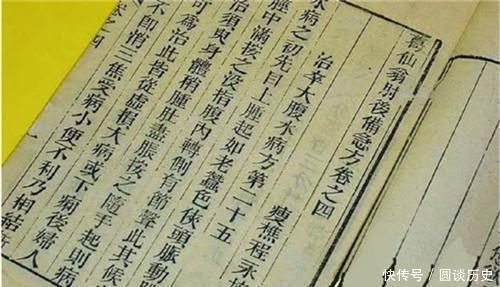 葛仙翁肘後備急方卷之四
瘦樵程永
治卒大腹水病方第二十五
水病之初先目上腫起如老蠶色俠頭脈動
脛中滿按之沒指腹內轉側有節聲此其候
治須臾身體稍腫肚盡脹按之隨手起則病
可為治此皆從虛損大病或下病後婦人
不即消三焦受病小便不利乃相結
卷之四 一
快传号 / 圆谈历史